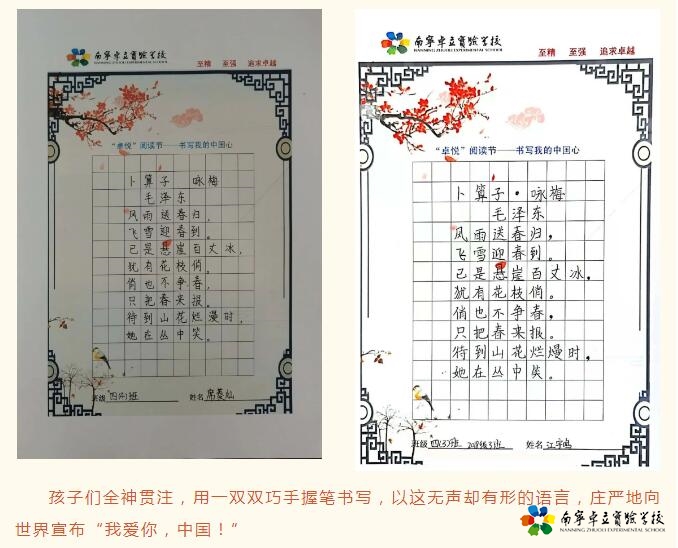 南宁卓立实验学校
NANNING ZHUOLI EXPERIMENTAL SCHOOL
至精 至强 追求卓越
“卓悦”阅读节——书写我的中国心
卜算子 咏梅
毛泽东
风雨送春归,
飞雪迎春到。
已是悬崖百丈冰,
犹有花枝俏。
俏也不争春,
只把春来报。
待到山花烂漫时,
她在丛中笑。
班级 四(4)班 姓名
南宁卓立实验学校
NANNING ZHUOLI EXPERIMENTAL SCHOOL
至精 至强 追求卓越
“卓悦”阅读节——书写我的中国心
卜算子·咏梅
毛泽东
风雨送春归,
飞雪迎春到。
已是悬崖百丈冰,
犹有花枝俏。
俏也不争春,
只把春来报。
待到山花烂熳时,
她在丛中笑。
班级 四(3)班 2018级3班 姓名 江宇鸣
孩子们全神贯注，用一双双巧手握笔书写，以这无声却有形的语言，庄严地向
世界宣布“我爱你，中国！”
南宁卓立实验学校
NANNING ZHUOLI EXPERIMENTAL SCHOOL